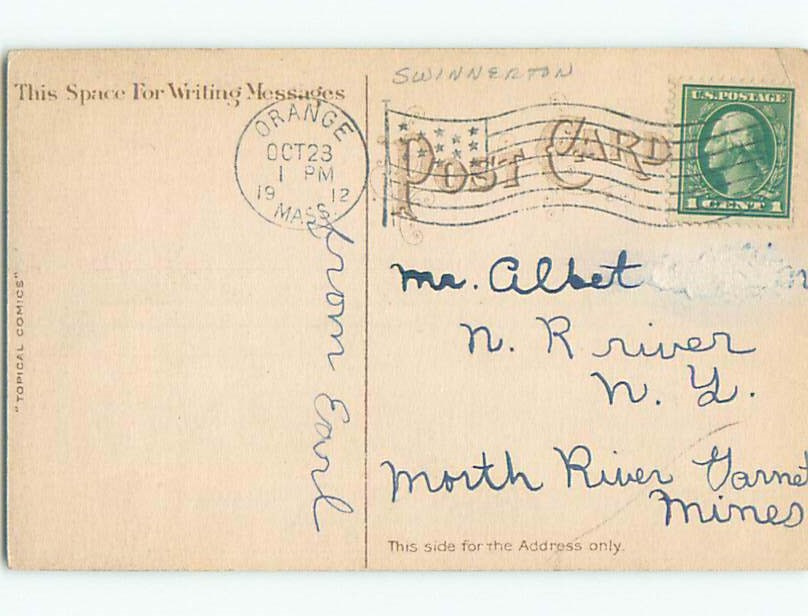 SWINNERTON
This Space For Writing Messages
ORANGE
OCT 23
1 PM
19 12
MASS.
POST CARD
U.S. POSTAGE
1 CENT 1
From Earl
"TOPICAL COMICS"
Mr. Albet
N. R river
N. Y.
North River Garnet
Mines
This side for the Address only.